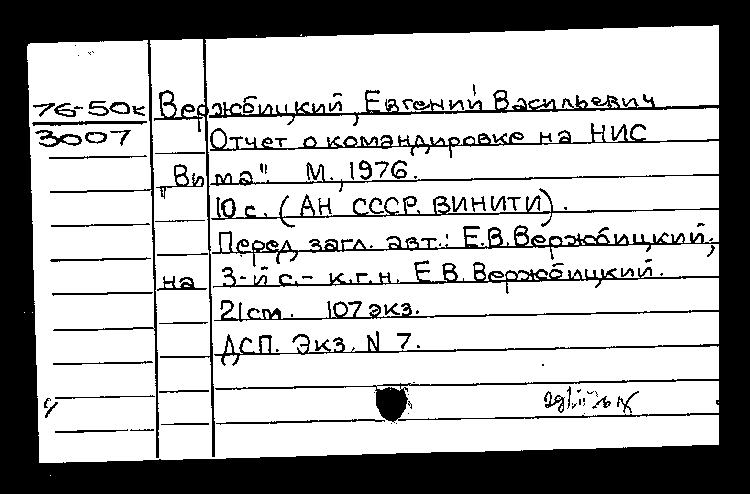 76-50к Вержбицкий, Евгений Васильевич
3007 Отчет о командировке на НИС
"Вима". М., 1976.
10 с. (АН СССР. ВИНИТИ).
Перед загл. авт.: Е.В.Вержбицкий;
на 3-й с.- к.г.н. Е.В.Вержбицкий.
21 см. 107 экз.
ДСП. Экз. N 7.